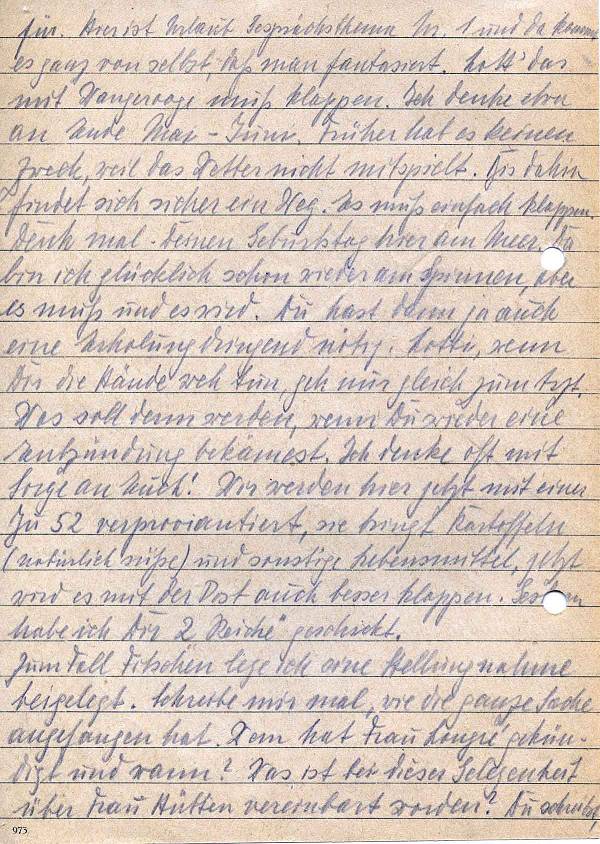 für. Hier ist Urlaub Gesprächsthema Nr. 1 und da kommt
es ganz von selbst, daß man fantasiert. Lott' das
mit Wangerooge muß klappen. Ich denke etwa
an Ende Mai - Juni. Früher hat es keinen
Zweck, weil das Wetter nicht mitspielt. Bis dahin
findet sich sicher ein Weg. Es muß einfach klappen.
Denk mal - Deinen Geburtstag hier am Meer. Da
bin ich glücklich schon wieder am Spinnen, aber
es muß und es wird. Du hast dann ja auch
eine Erholung dringend nötig. Lotti, wenn
Dir die Hände weh tun, geh nur gleich zum Arzt.
Was soll denn werden, wenn Du wieder eine
Entzündung bekämest. Ich denke oft mit
Sorge an Euch! Wir werden hier jetzt mit einer
Ju 52 verproviantiert, sie bringt Kartoffeln
(natürlich süße) und sonstige Lebensmittel, jetzt
wird es mit der Post auch besser klappen. Gestern
habe ich Dir 2 „Reiche" geschickt.
Zum Fall Fitschen lege ich eine Stellungnahme
beigelegt. Schreibe mir mal, wie die ganze Sache
angefangen hat. Wem hat Frau Longré gekün-
digt und wann? Was ist bei dieser Gelegenheit
über Frau Hütten vereinbart worden? Du schreibst,
973